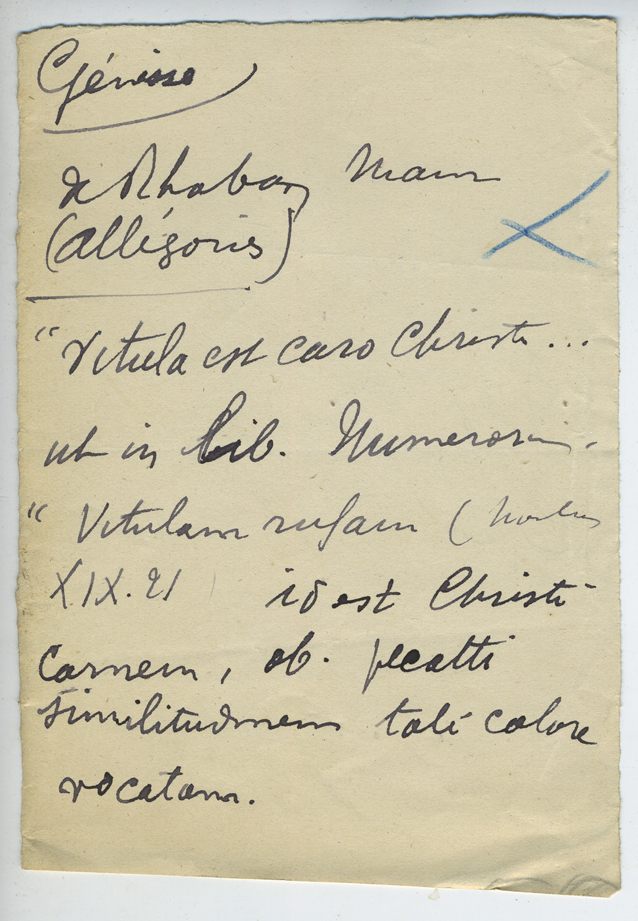 Génisse
de Rhaban Maur
(allégories)
"Vitula est caro Christi...
ut in Lib. Numerorum.
"Vitulam rufam (Nombres
XIX. 21 id est Christi
Carnem, ob. pecatti
similitudinem tali colore
vocatam.